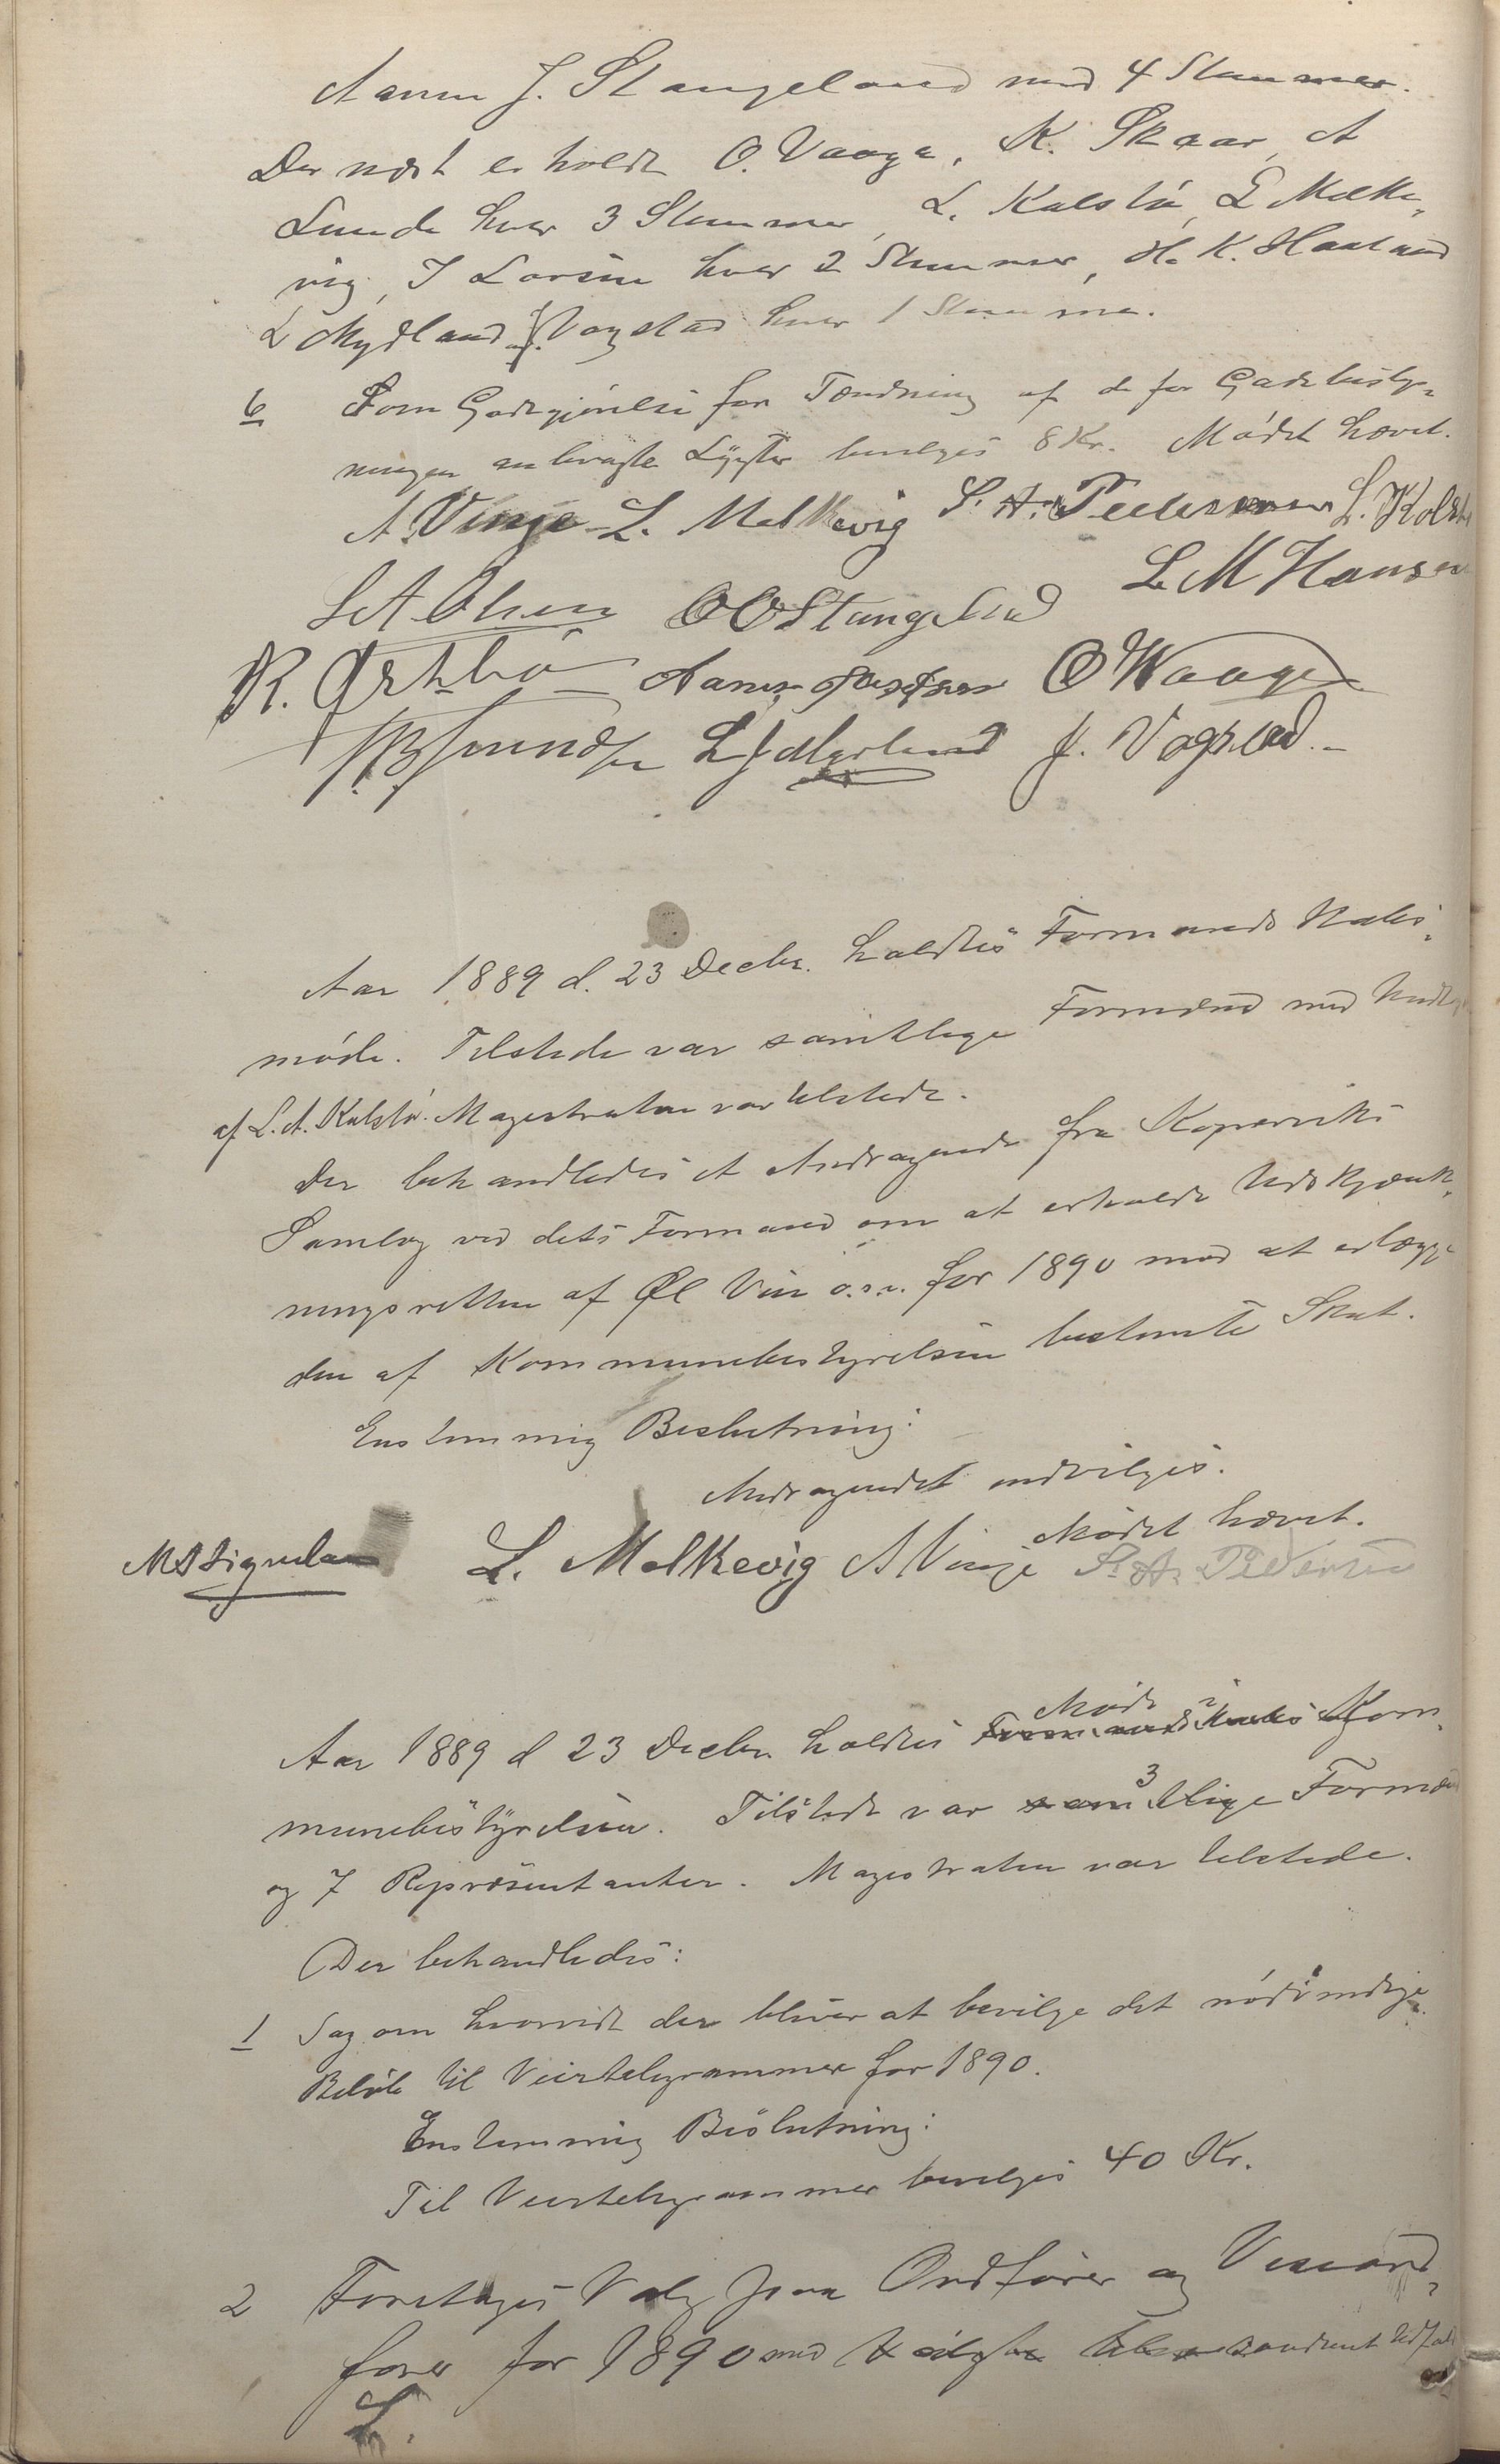 Aanen J. Stangeland med 4 Stemmer.
Der næst erholdt O. Vaage, K. Skaar, A
Lunde hver 3 Stemmer, L. Kalstø, L Melke„
vig, J Larsen hver 2 Stemmer, H. K. Haaland
L Mydland J. Vagstad hver 1 Stemme.
6 Som Godtgjørelse for Tændning af de for Gadebelys„
ningen anbragte Lygter bevilges 8 Kr. Mødet hævet.
A Vinje L. Melkevig S. A. Pedersen L. Kolstø
S A Olsen O O Stangeland L M Hansen
R. Østhbø Aanen O Waage
L J Mydland J. Vagstad.
Aar 1889 d. 23 Decbr. holdtes Formands Skabs„
møde. Tilstede var samtlige Formænd med Undt
af L. A. Kalstø. Magistraten var tilstede.
Der behandledes et Andragende fra Kopervik's
Samlag ved dets Formand om at erholde Udskjænk„
ningsretten af Øl Vin o.s.v. for 1890 mod at erlægge
den af Kommunebestyrelsen bestemte Skat.
Enstemmig Beslutning:
Andragendet indvilges.
Mødet hævet.
L. Melkevig A Vinje S. A. Pedersen
Aar 1889 d 23 Decbr. holdtes Møde i Kom„
munebestyrelsen. Tilstede var 3 Formænd
og 7 Repræsentanter. Magistraten var tilstede.
Der behandledes:
1 Sag om hvorvidt der bliver at bevilge det nødvendige
Beløb til Veirtelegrammer for 1890.
Enstemmig Beslutning:
Til Veirtelegrammer bevilges 40 Kr.
2 Foretages Valg paa Ordfører og Viceord„
fører for 1890 med Udfald
L.